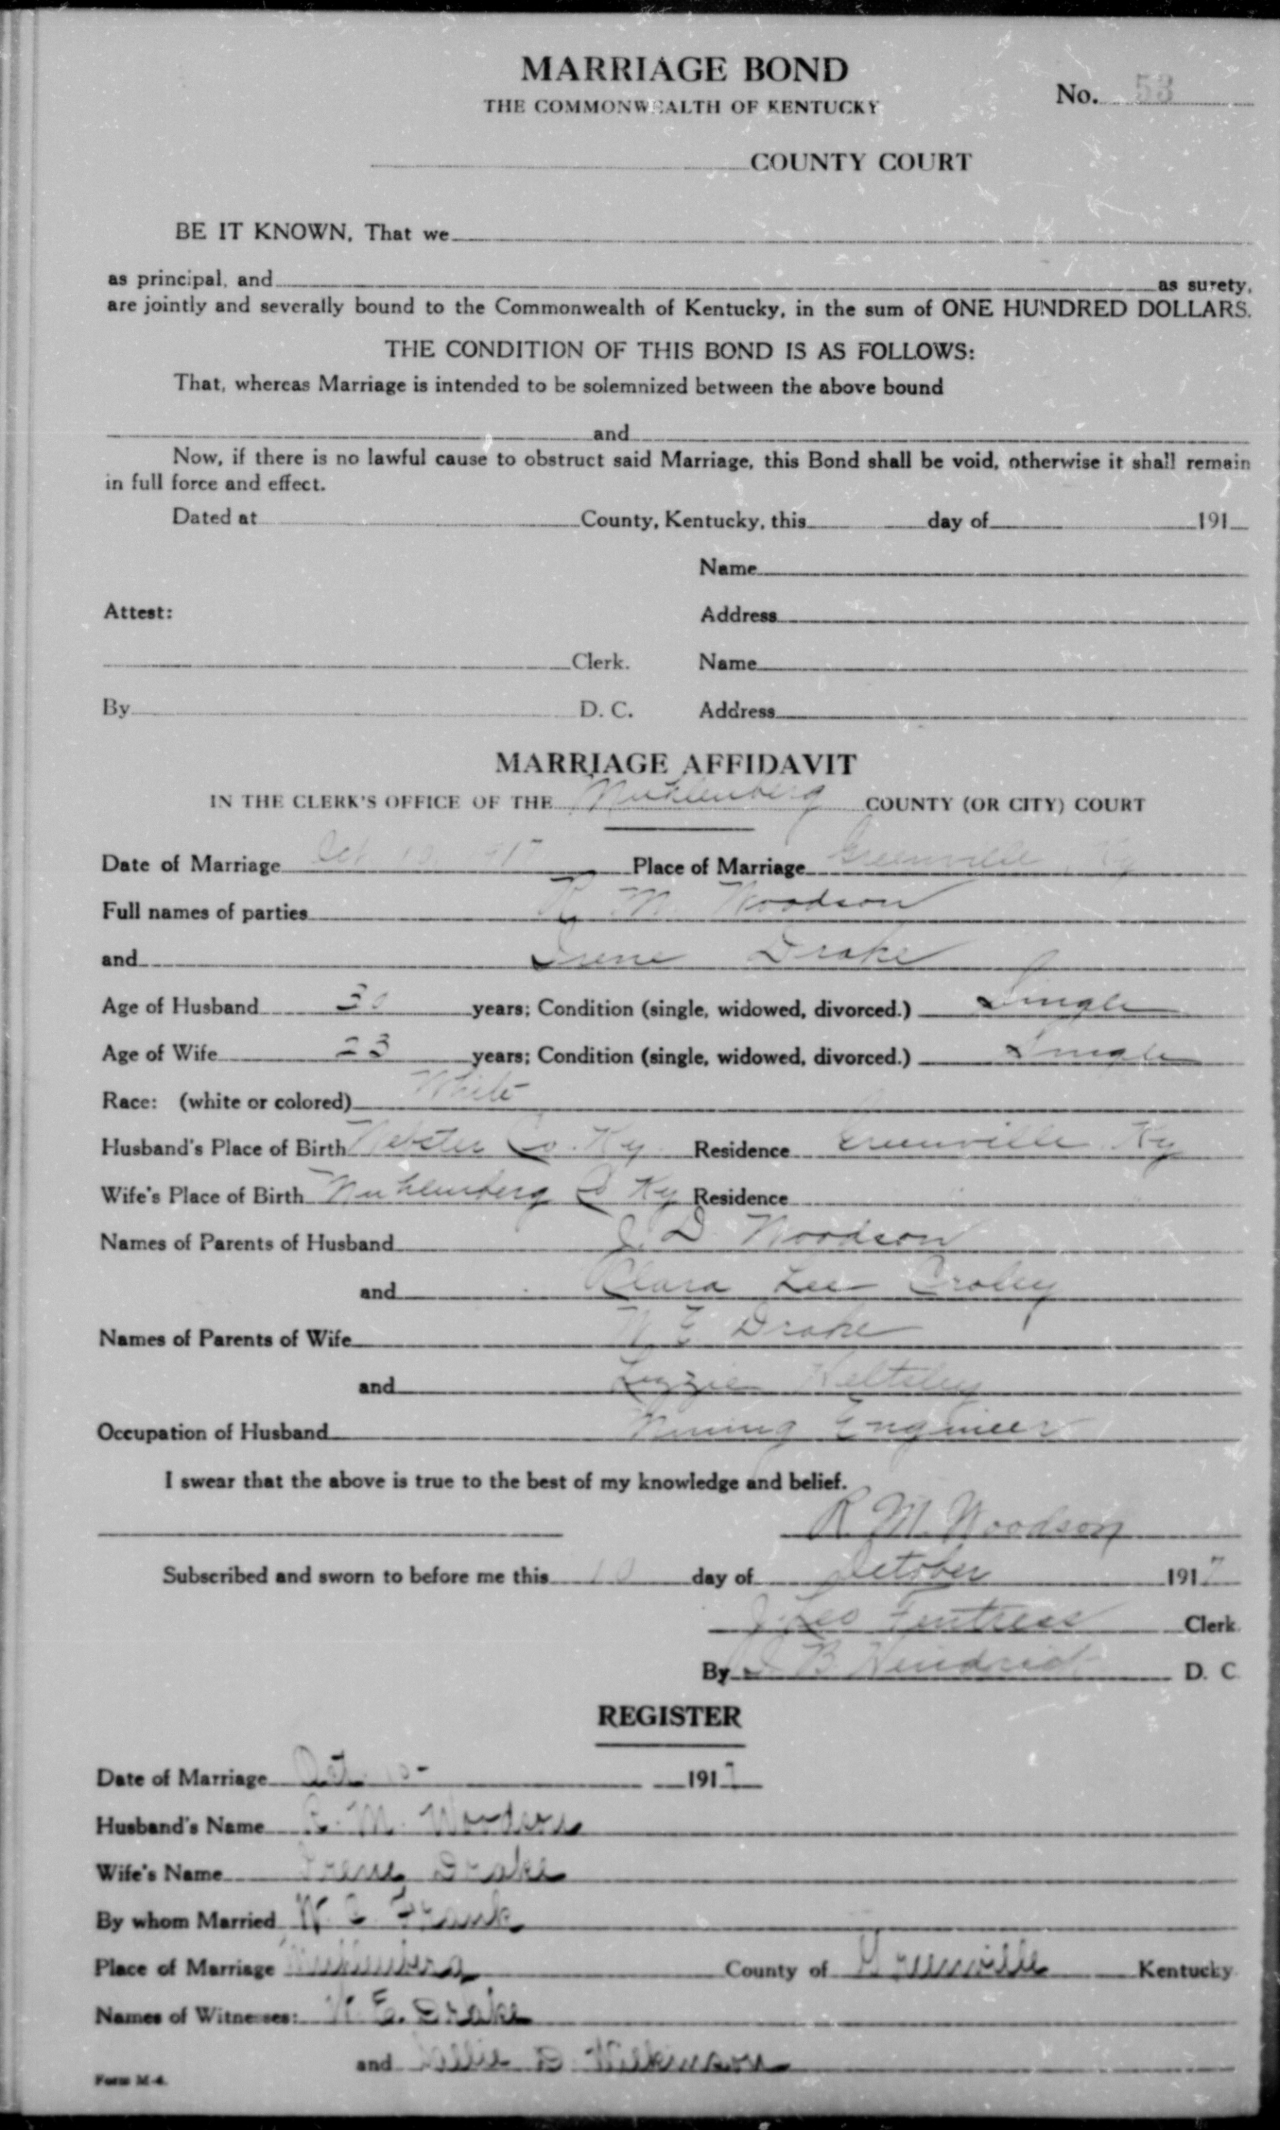 MARRIAGE BOND
THE COMMONWEALTH OF KENTUCKY
No. 53
COUNTY COURT
BE IT KNOWN, That we
as principal, and as surety,
are jointly and severally bound to the Commonwealth of Kentucky, in the sum of ONE HUNDRED DOLLARS.
THE CONDITION OF THIS BOND IS AS FOLLOWS:
That, whereas Marriage is intended to be solemnized between the above bound
and
Now, if there is no lawful cause to obstruct said Marriage, this Bond shall be void, otherwise it shall remain
in full force and effect.
Dated at County, Kentucky, this day of 191
Name
Attest: Address
Clerk. Name
By D. C. Address
MARRIAGE AFFIDAVIT
IN THE CLERK'S OFFICE OF THE Muhlenberg COUNTY (OR CITY) COURT
Date of Marriage Oct 10 1917 Place of Marriage Greenville Ky
Full names of parties R. M. Woodson
and Irene Drake
Age of Husband 30 years; Condition (single, widowed, divorced.) Single
Age of Wife 23 years; Condition (single, widowed, divorced.) Single
Race: (white or colored) White
Husband's Place of Birth Webster Co. Ky. Residence Greenville Ky
Wife's Place of Birth Muhlenberg Co Ky Residence " "
Names of Parents of Husband J. D. Woodson
and Clara Lee Croley
Names of Parents of Wife W E Drake
and Lizzie Weltsley
Occupation of Husband Mining Engineer
I swear that the above is true to the best of my knowledge and belief.
R. M. Woodson
Subscribed and sworn to before me this 10 day of October 1917
J. Leo Fentress Clerk.
By B Hendrick D. C.
REGISTER
Date of Marriage Oct. 10 - 1917
Husband's Name R. M. Woodson
Wife's Name Irene Drake
By whom Married W. C. Frank
Place of Marriage Muhlenberg County of Greenville Kentucky
Names of Witnesses: W. E. Drake
and Sallie B. Wilkinson
Form M-4.